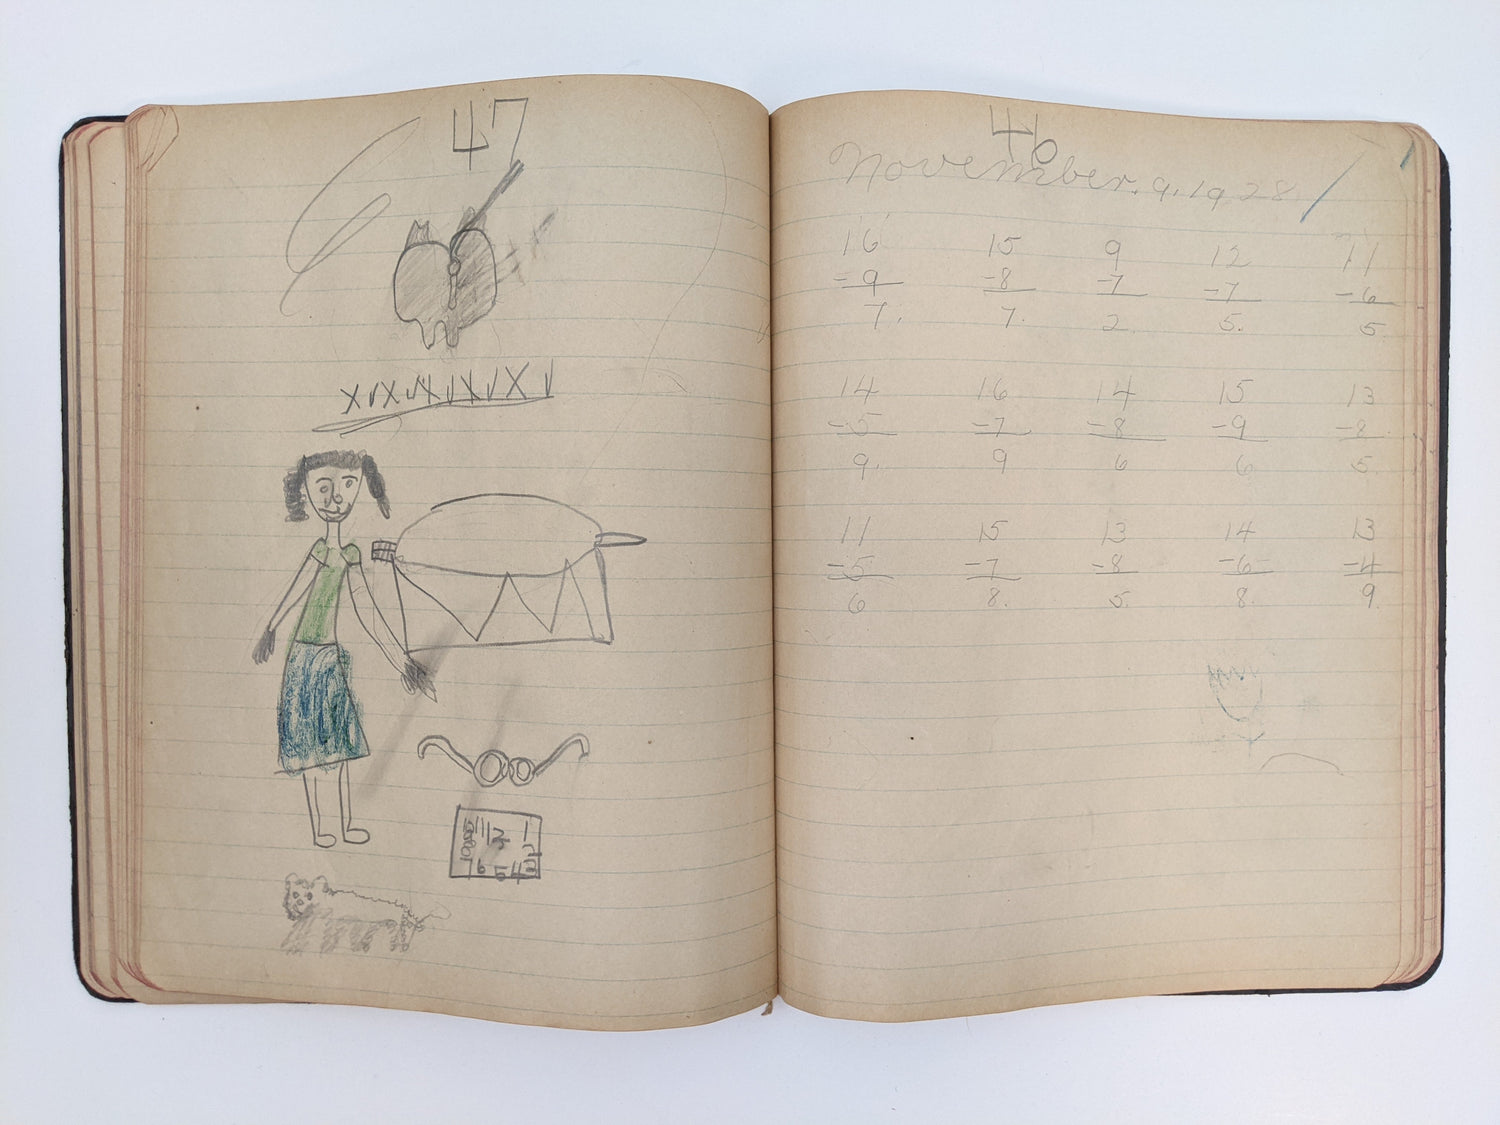 47
XVXVXVXVXV
46
November. 9. 1928.
16 15 9 12 11
-9 -8 -7 -7 -6
7. 7. 2. 5. 5
14 16 14 15 13
-5 -7 -8 -9 -8
9. 9 6 6 5
11 15 13 14 13
-5 -7 -8 -6 -4
6 8. 5. 8. 9.